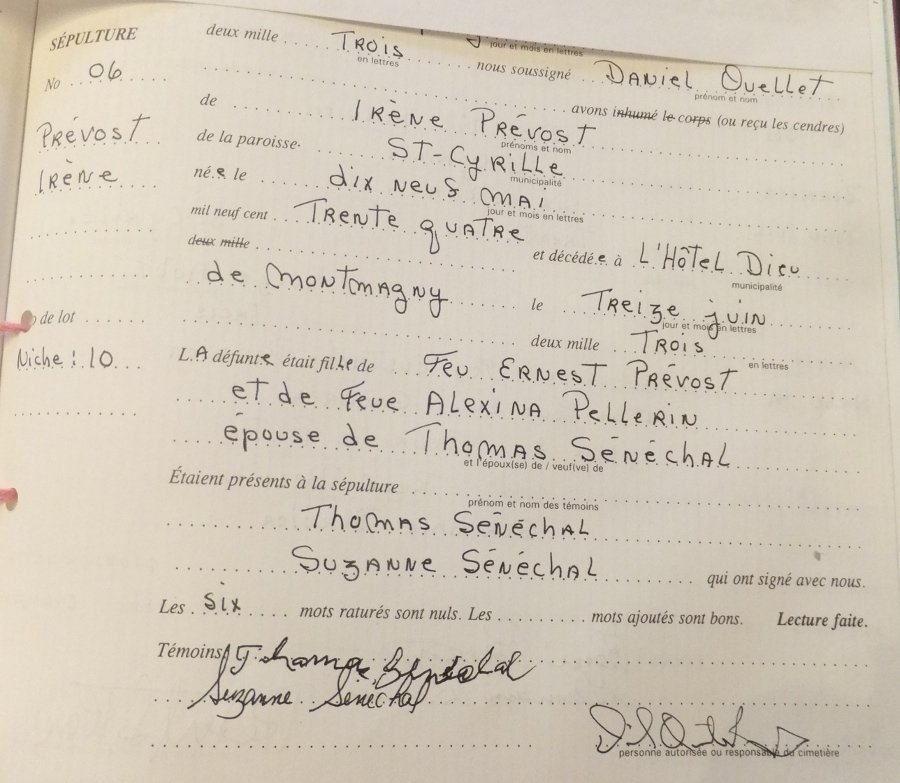 SÉPULTURE
deux mille TROIS
jour et mois en lettres
en lettres
No 06
nous soussigné DANIEL OUELLET
prénom et nom
avons inhumé le corps (ou reçu les cendres)
PRÉVOST
IRÈNE
de IRÈNE PRÉVOST
prénoms et nom
de la paroisse ST-CYRILLE
municipalité
né.e le dix neuf mai
jour et mois en lettres
mil neuf cent Trente quatre
deux mille
et décédé.e à L'HÔTEL DIEU
municipalité
de MONTMAGNY
le TREIZE juin
jour et mois en lettres
de lot
deux mille TROIS
en lettres
Niche : 10
L.A défunte était fille de FEU ERNEST PRÉVOST
et de Feue ALEXINA PELLERIN
épouse de THOMAS SÉNÉCHAL
et l'époux(se) de / veuf(ve) de
Étaient présents à la sépulture
prénom et nom des témoins
THOMAS SÉNÉCHAL
SUZANNE SÉNÉCHAL
qui ont signé avec nous.
Les six mots raturés sont nuls. Les mots ajoutés sont bons. Lecture faite.
Témoins Thomas Sénéchal
Suzanne Sénéchal
personne autorisée ou responsable du cimetière